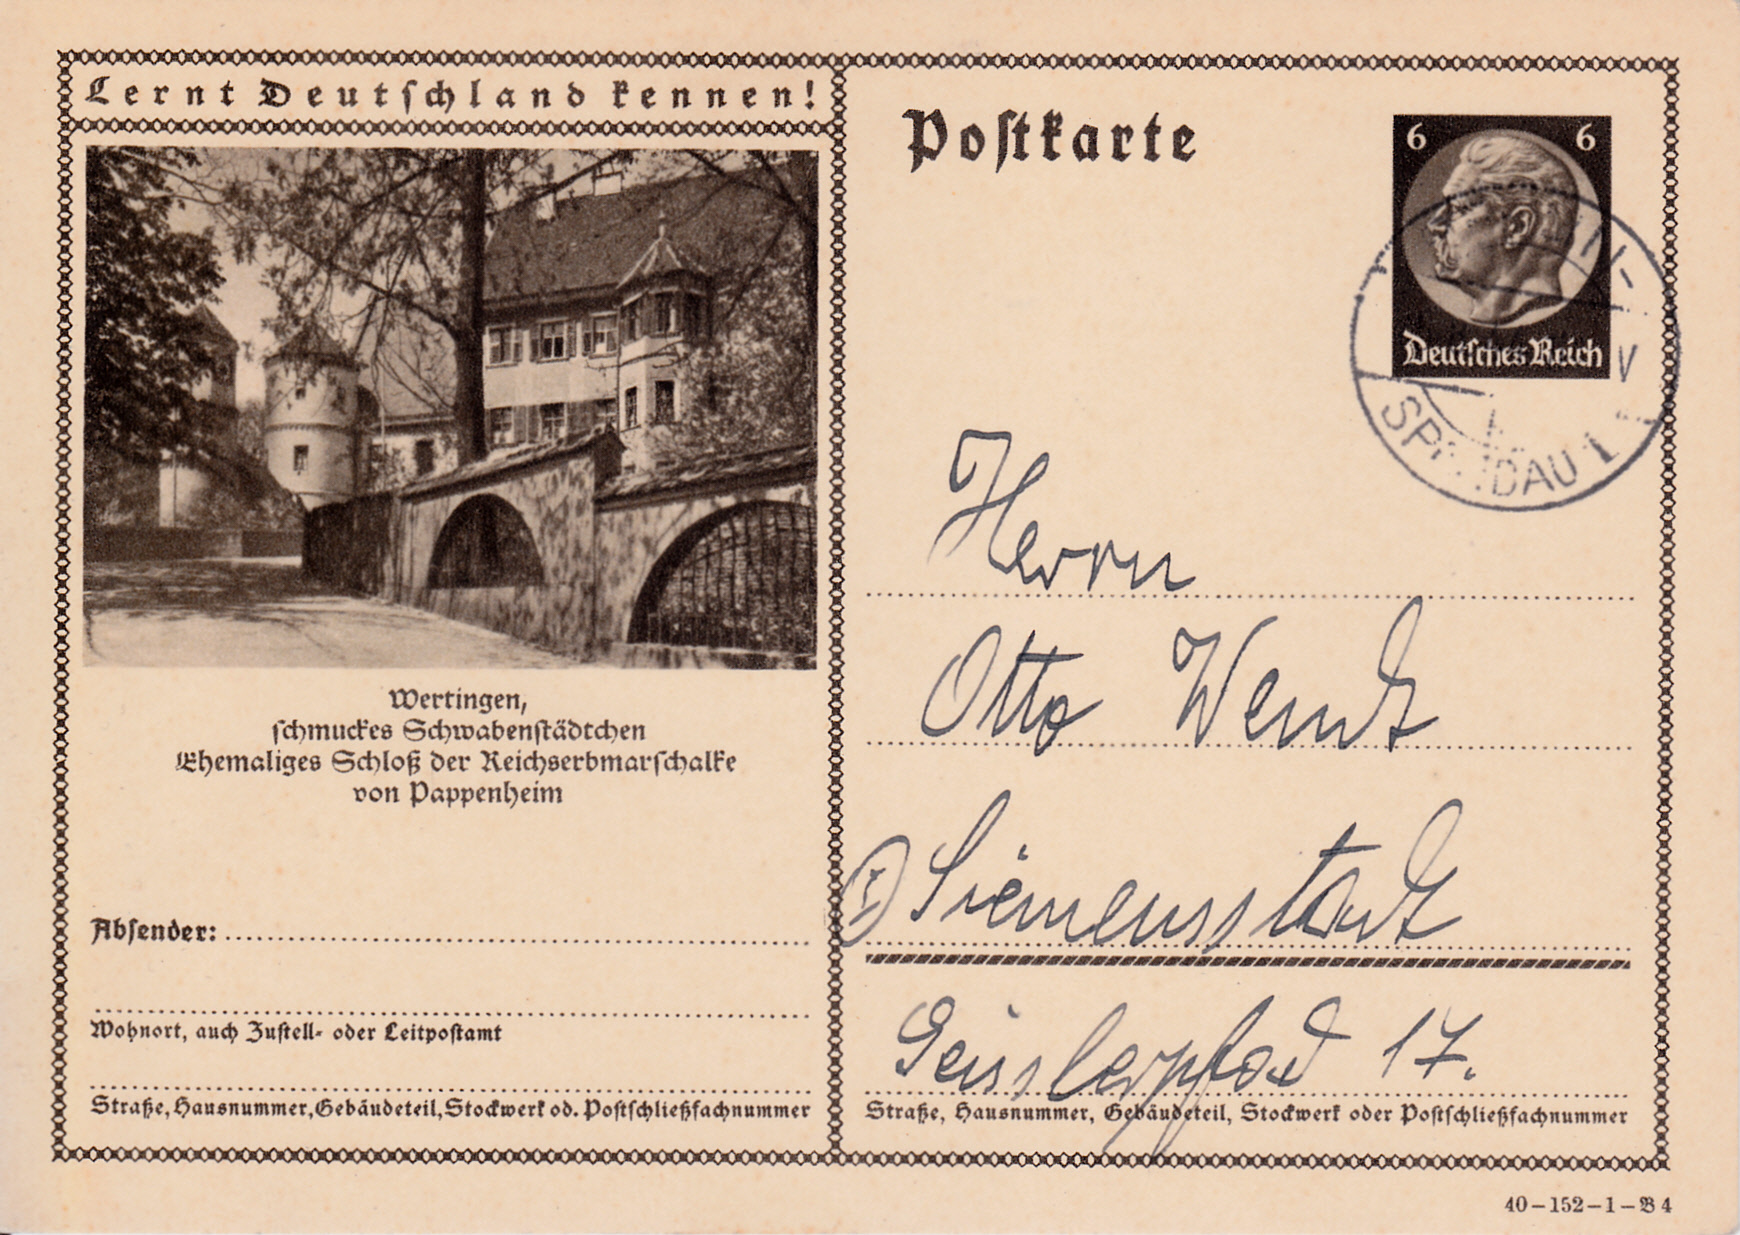 Lernt Deutschland kennen!
Postkarte
6 6
Deutsches Reich
SPANDAU 1
Herrn
Otto Wendt
Wertingen,
schmuckes Schwabenstädtchen
Ehemaliges Schloß der Reichserbmarschalke
von Pappenheim
Siemensstadt
Absender:
Geisslerpfad 17.
Wohnort, auch Zustell- oder Leitpostamt
Straße, Hausnummer, Gebäudeteil, Stockwerk od. Postschließfachnummer
Straße, Hausnummer, Gebäudeteil, Stockwerk oder Postschließfachnummer
40-152-1-B 4